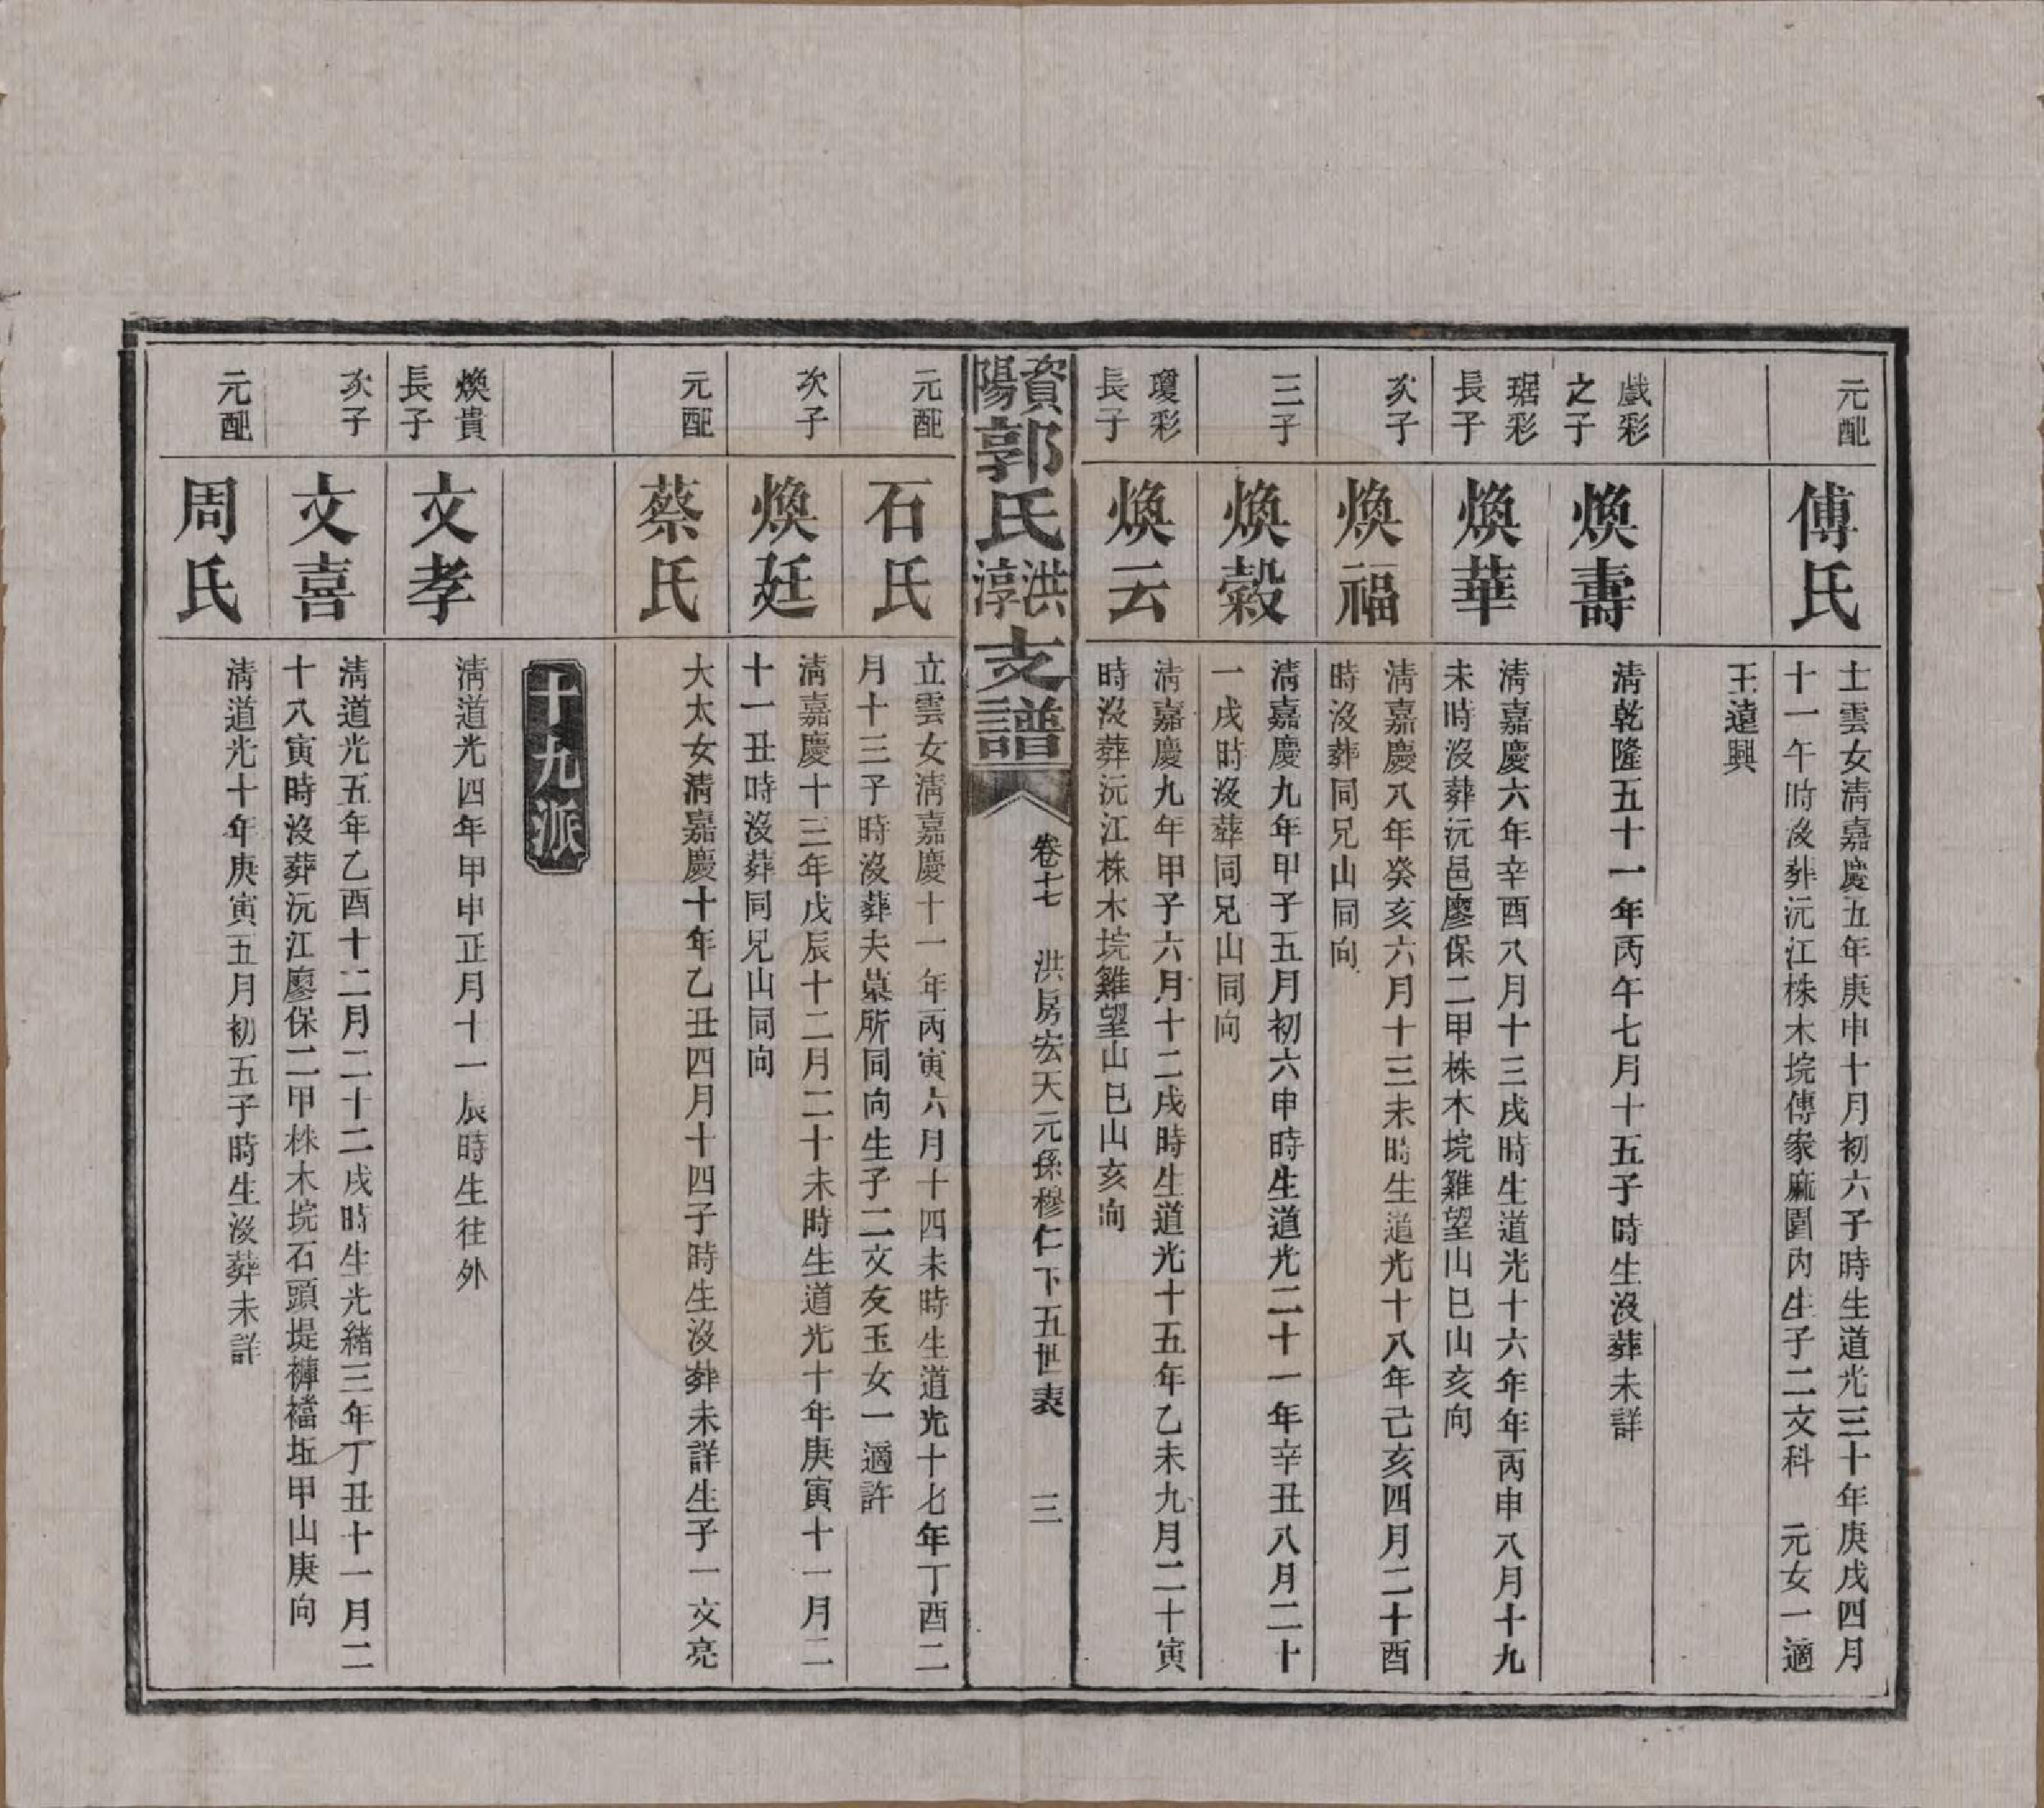 元配
傅氏
士雲女淸嘉慶五年庚申十月初六子時生道光三十年庚戌四月
十一午時沒葬沅江株木垸傅家麻園內生子二文科　元女一適
王遠興
戲彩
之子
煥壽
淸乾隆五十一年丙午七月十五子時生沒葬未詳
琚彩
長子
煥華
淸嘉慶六年辛酉八月十三戌時生道光十六年年丙申八月十九
未時沒葬沅邑廖保二甲株木垸雞望山巳山亥向
次子
煥福
淸嘉慶八年癸亥六月十三未時生道光十八年己亥四月二十酉
時沒葬同兄山同向
三子
煥穀
淸嘉慶九年甲子五月初六申時生道光二十一年辛丑八月二十
一戌時沒葬同兄山同向
瓊彩
長子
煥云
淸嘉慶九年甲子六月十二戌時生道光十五年乙未九月二十寅
時沒葬沅江株木垸雞望山巳山亥向
資陽郭氏洪淳支譜
卷十七　洪房宏天元孫穆仁下五世表　三
元配
石氏
立雲女淸嘉慶十一年丙寅六月十四未時生道光十七年丁酉二
月十三子時沒葬夫墓所同向生子二文友玉女一適許
次子
煥廷
淸嘉慶十三年戊辰十二月二十未時生道光十年庚寅十一月二
十一丑時沒葬同兄山同向
元配
蔡氏
大太女淸嘉慶十年乙丑四月十四子時生沒葬未詳生子一文亮
十九派
煥貴
長子
文孝
淸道光四年甲申正月十一辰時生往外
次子
文喜
淸道光五年乙酉十二月二十二戌時生光緖三年丁丑十一月二
十八寅時沒葬沅江廖保二甲株木垸石頭堤褲襠坵甲山庚向
元配
周氏
淸道光十年庚寅五月初五子時生沒葬未詳